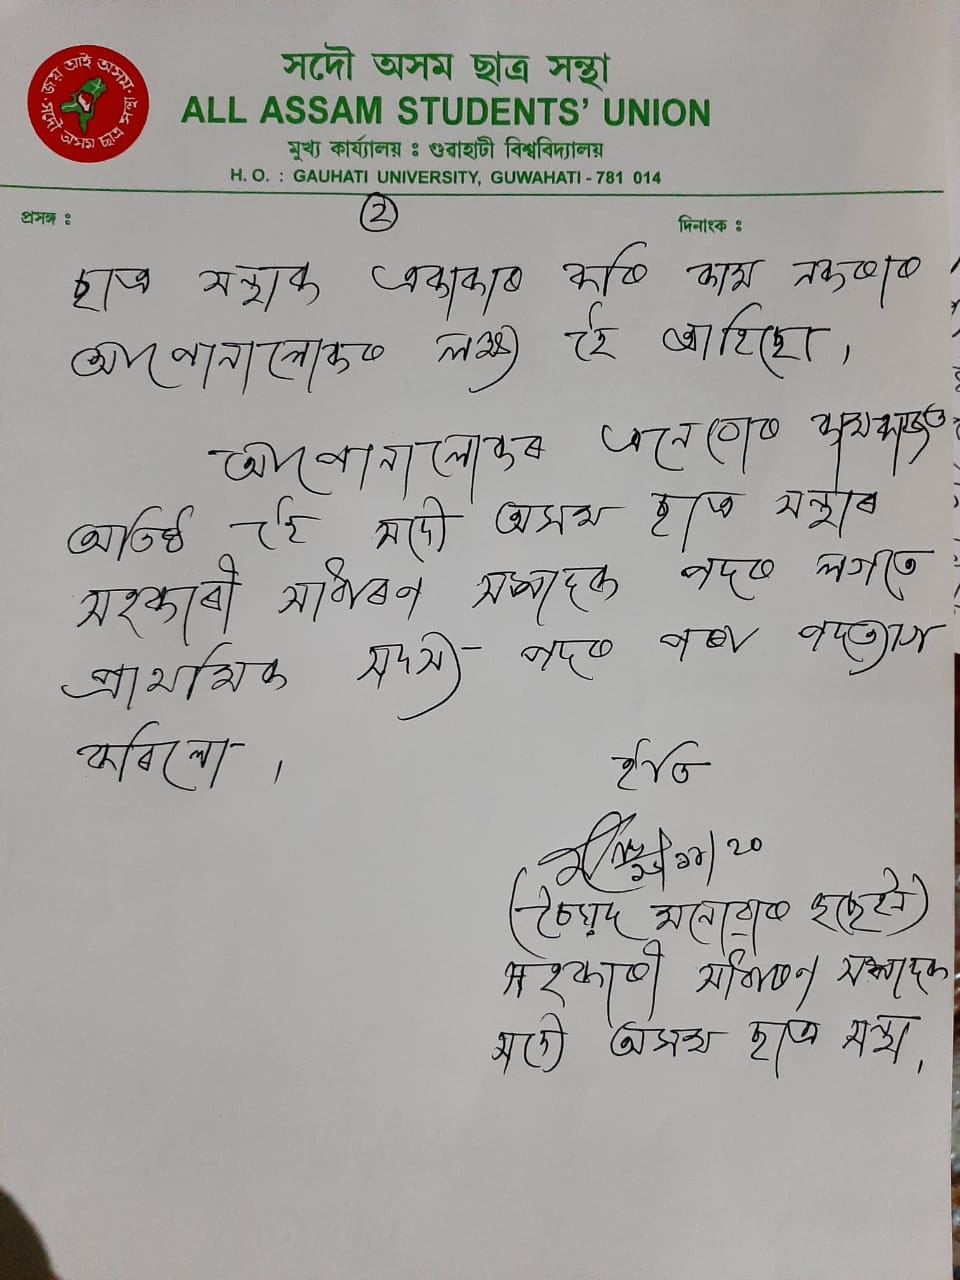 জয় আই অসম
সদৌ অসম ছাত্ৰ সন্থা
সদৌ অসম ছাত্ৰ সন্থা
ALL ASSAM STUDENTS' UNION
মুখ্য কাৰ্য্যালয় : গুৱাহাটী বিশ্ববিদ্যালয়
H. O. : GAUHATI UNIVERSITY, GUWAHATI - 781 014
প্ৰসঙ্গ :
২
দিনাংক :
ছাত্ৰ সন্থাক একাকাৰ কৰি কাম নকৰাৰ
আপোনালোকৰ লক্ষ্য হৈ আহিছো।
আপোনালোকৰ এনেবোৰ কামকাজত
অতিষ্ঠ হৈ সদৌ অসম ছাত্ৰ সন্থাৰ
সহকাৰী সাধাৰণ সম্পাদক পদৰ লগতে
প্ৰাথমিক সদস্য পদৰ পৰা পদত্যাগ
কৰিলো।
ইতি
২০
(চৈয়দ মনোৱাৰ হুছেইন)
সহকাৰী সাধাৰণ সম্পাদক
সদৌ অসম ছাত্ৰ সন্থা।